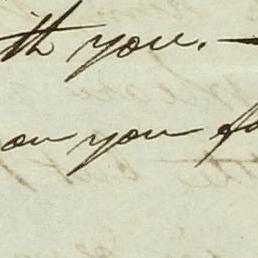 ith you. —
on you fo